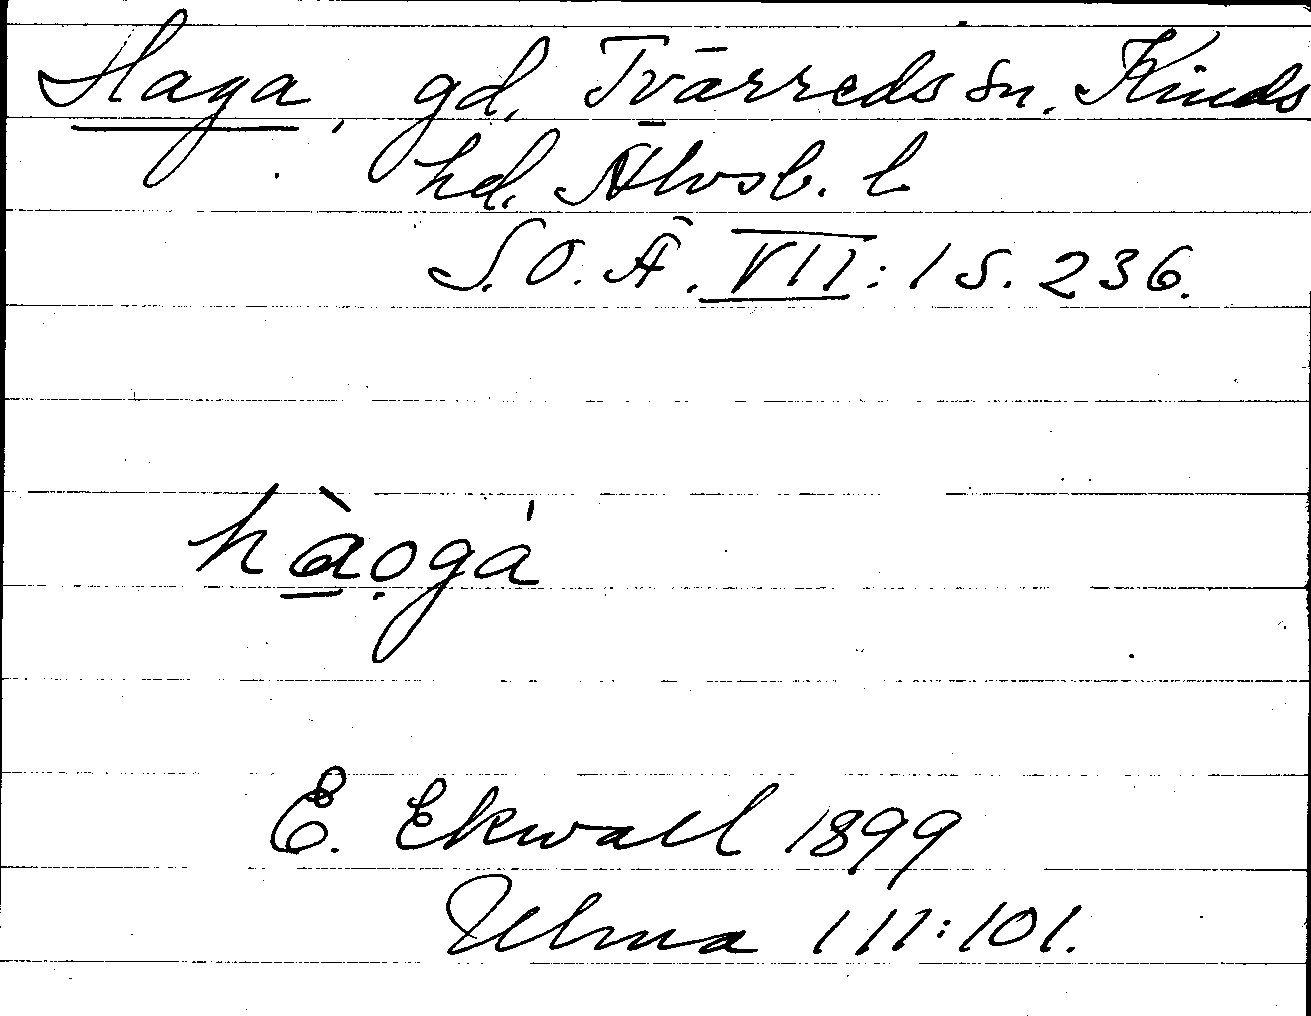 Haga, gd, Tvärreds sn. Kinds
hd. Älvsb. l
S.O.Ä. VII:1 S. 236.
hàogá
E. Ekwall 1899
Ulma 111:101.